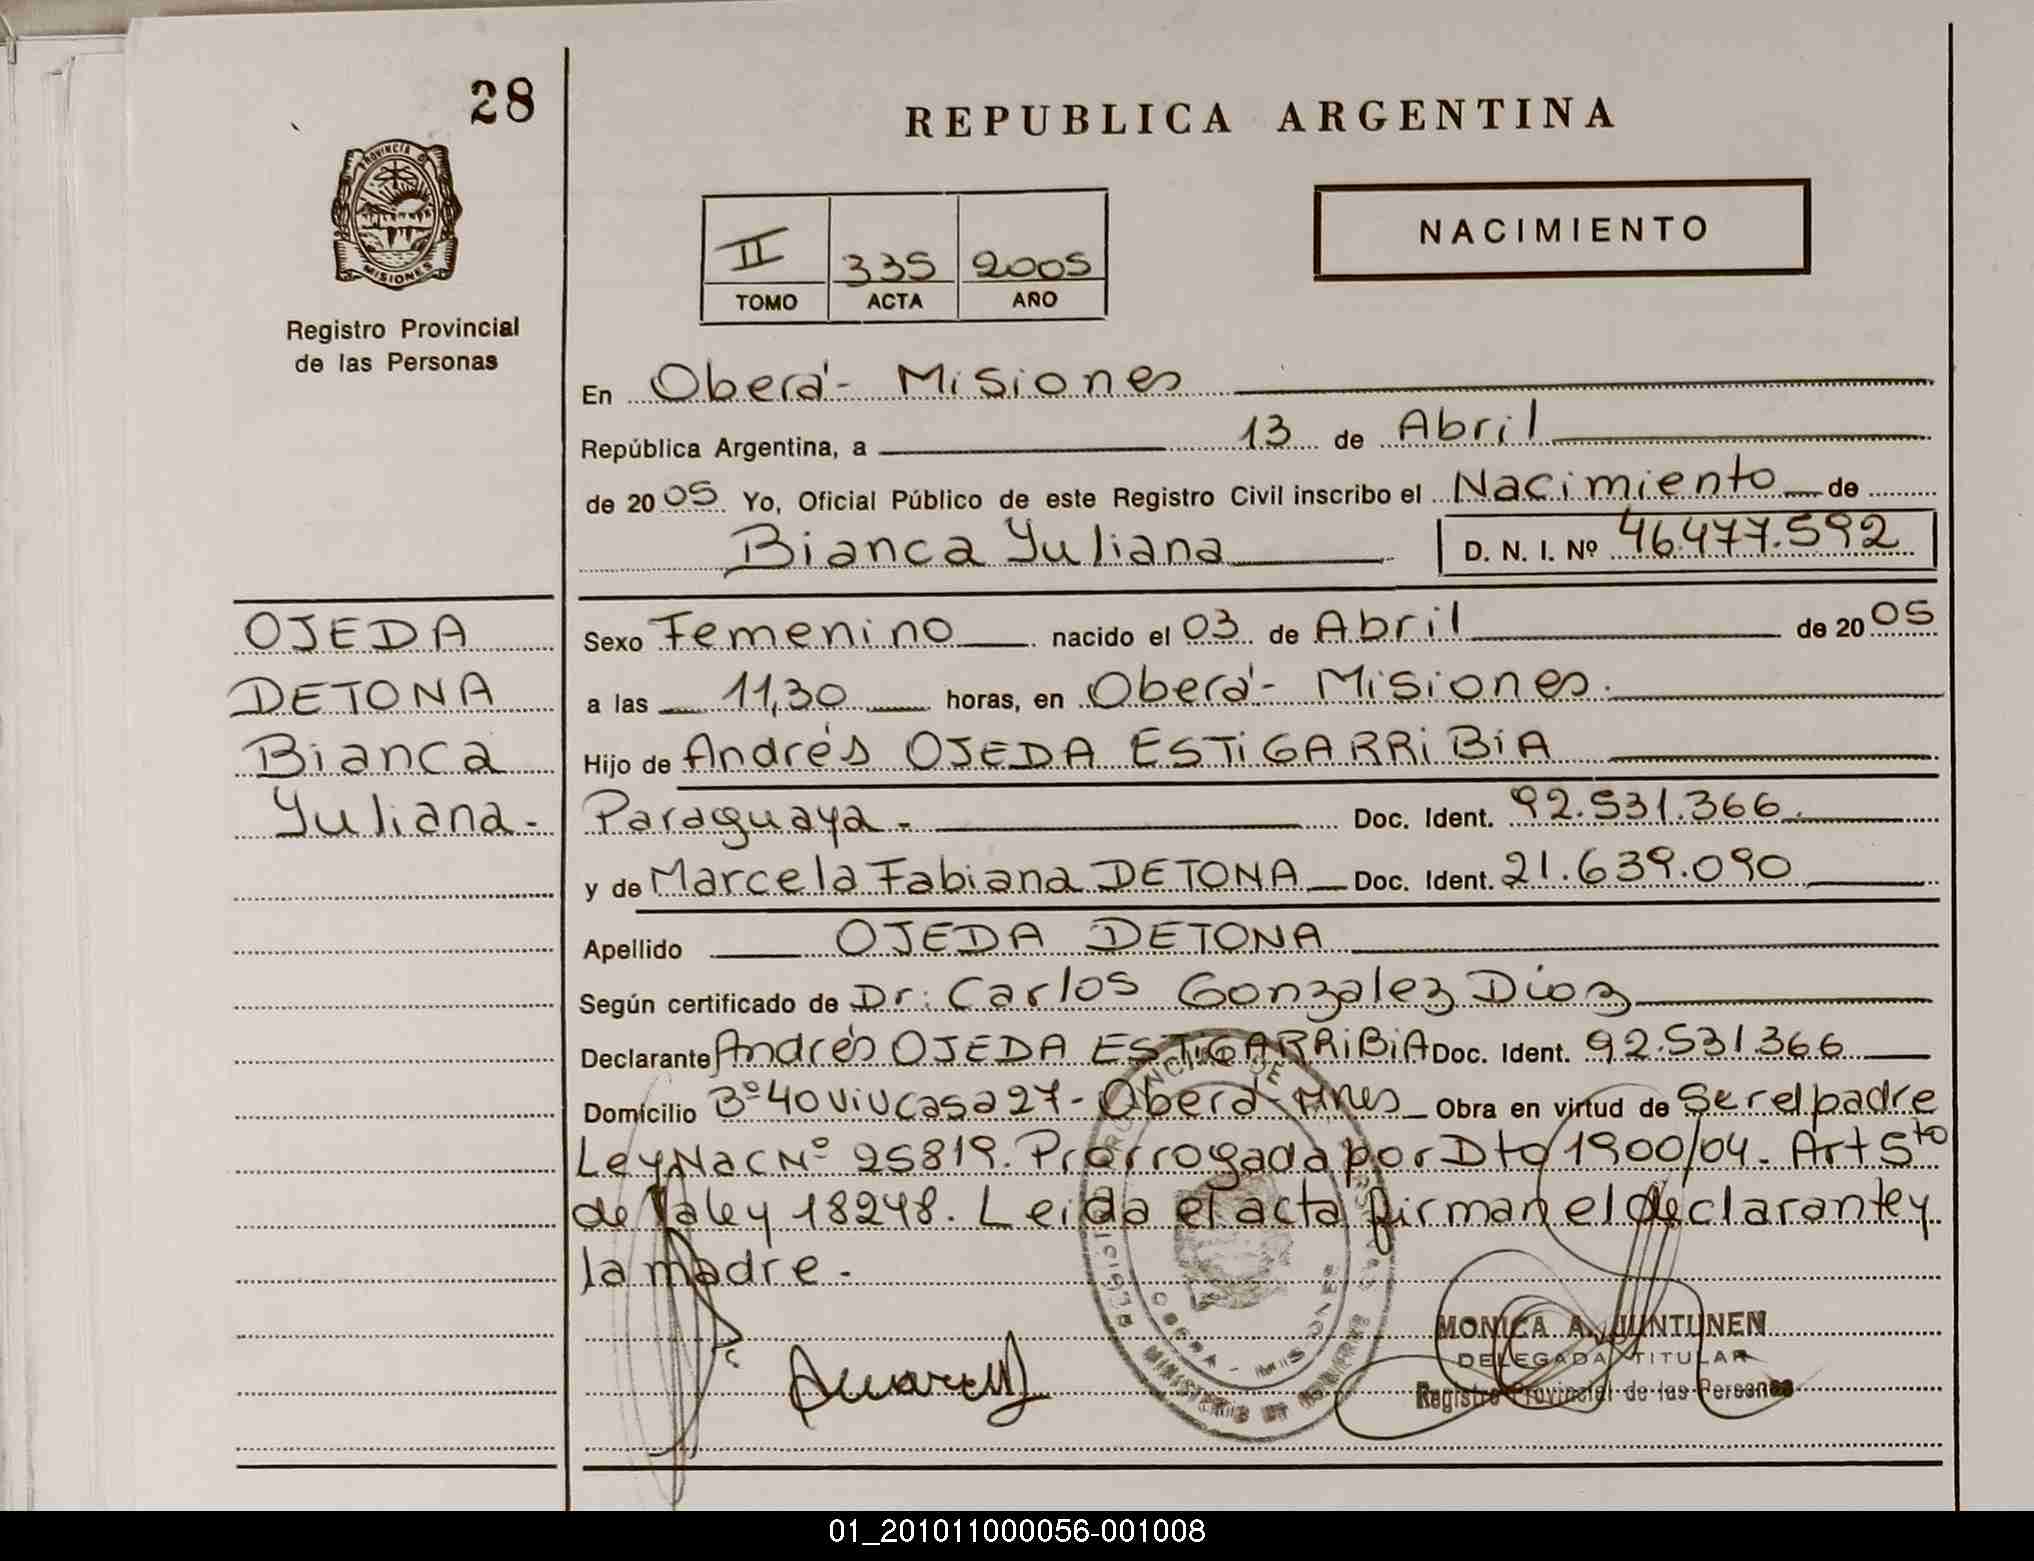 28
PROVINCIA DE
MISIONES
Registro Provincial
de las Personas
OJEDA
DETONA
Bianca
Yuliana-
REPUBLICA ARGENTINA
II 335 2005
TOMO ACTA AÑO
NACIMIENTO
En Oberá- Misiones
República Argentina, a 13 de Abril
de 20 05 Yo, Oficial Público de este Registro Civil inscribo el Nacimiento de
Bianca Yuliana D. N. I. Nº 46.477.592
Sexo Femenino nacido el 03 de Abril de 20 05
a las 11,30 horas, en Oberá- Misiones.
Hijo de Andrés OJEDA ESTIGARRIBIA
Paraguaya- Doc. Ident. 92.531.366.
y de Marcela Fabiana DETONA Doc. Ident. 21.639.090
Apellido OJEDA DETONA
Según certificado de Dr: Carlos Gonzalez Dioz
Declarante Andrés OJEDA ESTIGARRIBIA Doc. Ident. 92.531.366
Domicilio Bº 40 viv casa 27- Oberá- Mnes Obra en virtud de Ser el padre
Ley Nac Nº 25819. Prorrogada por Dto 1900/04. Art 5to
de la ley 18248. Leida el acta firman el declarante y
la madre.
OBERA - MISIONES
MINISTERIO DE GOBIERNO
MONICA A. JUNTUNEN
DELEGADA TITULAR
Registro Provincial de las Personas
01_201011000056-001008